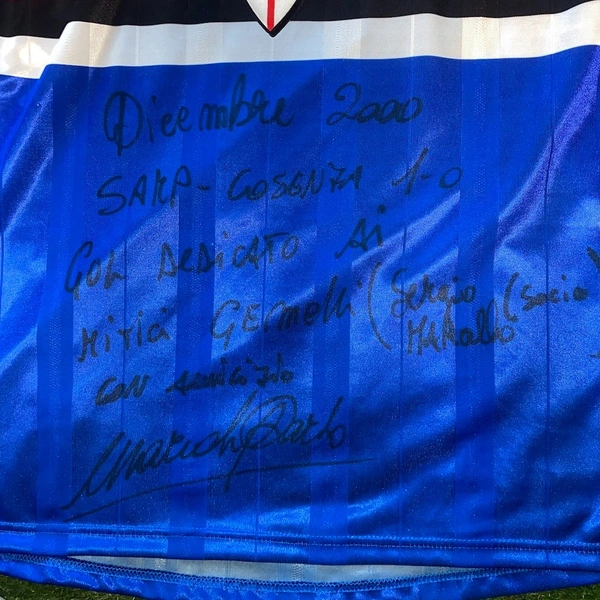 Dicembre 2000
SAMP - COSENZA 1-0
GOL DEDICATO AI
MITICI GEMELLI (Sergio (Socio)
con amicizia